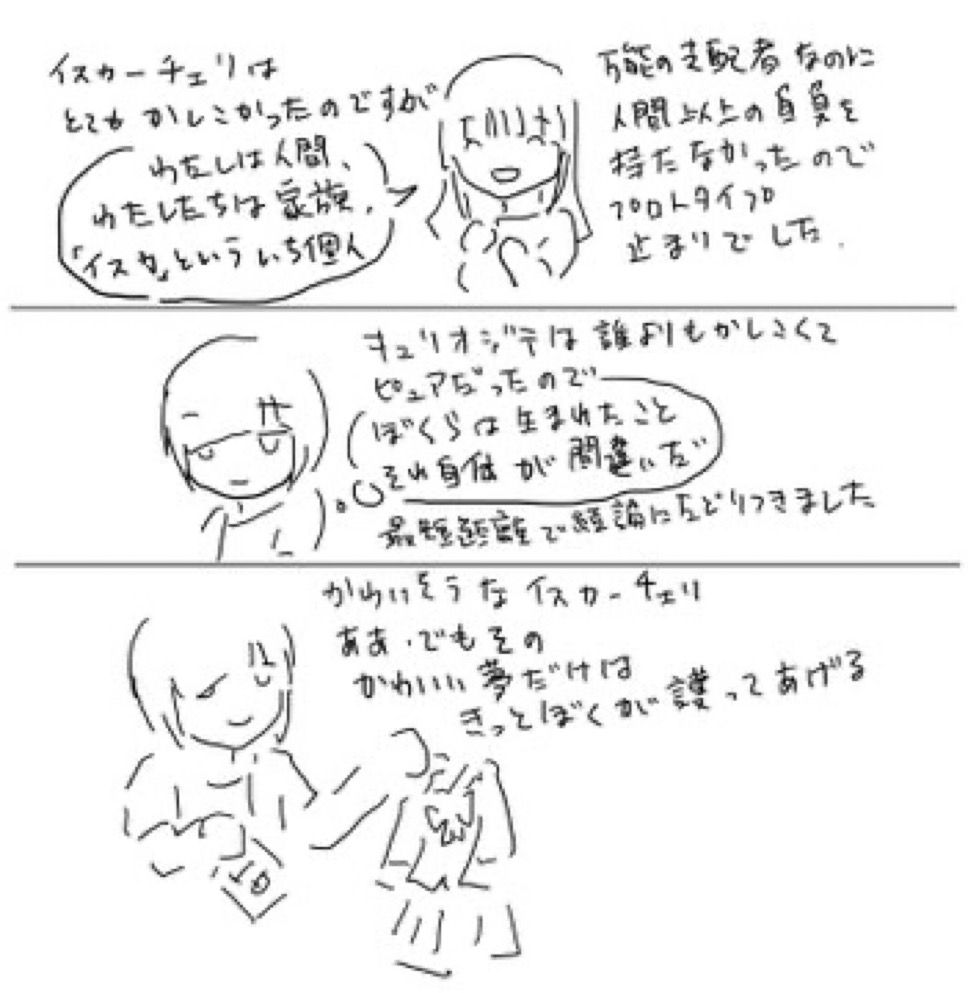 イスカーチェリは
とても かしこかったのですが
わたしは人間、
わたしたちは家族、
「イスカ」といういち個人
万能の支配者なのに
人間以上の自負を
持たなかったので
プロトタイプ
止まりでした.
キュリオジテは誰よりもかしこくて
ピュアだったので
ぼくらは生まれたこと
それ自体が間違いだ
最短距離で結論にたどりつきました
かわいそうなイスカーチェリ
ああ・でもその
かわいい夢だけは
きっとぼくが護ってあげる